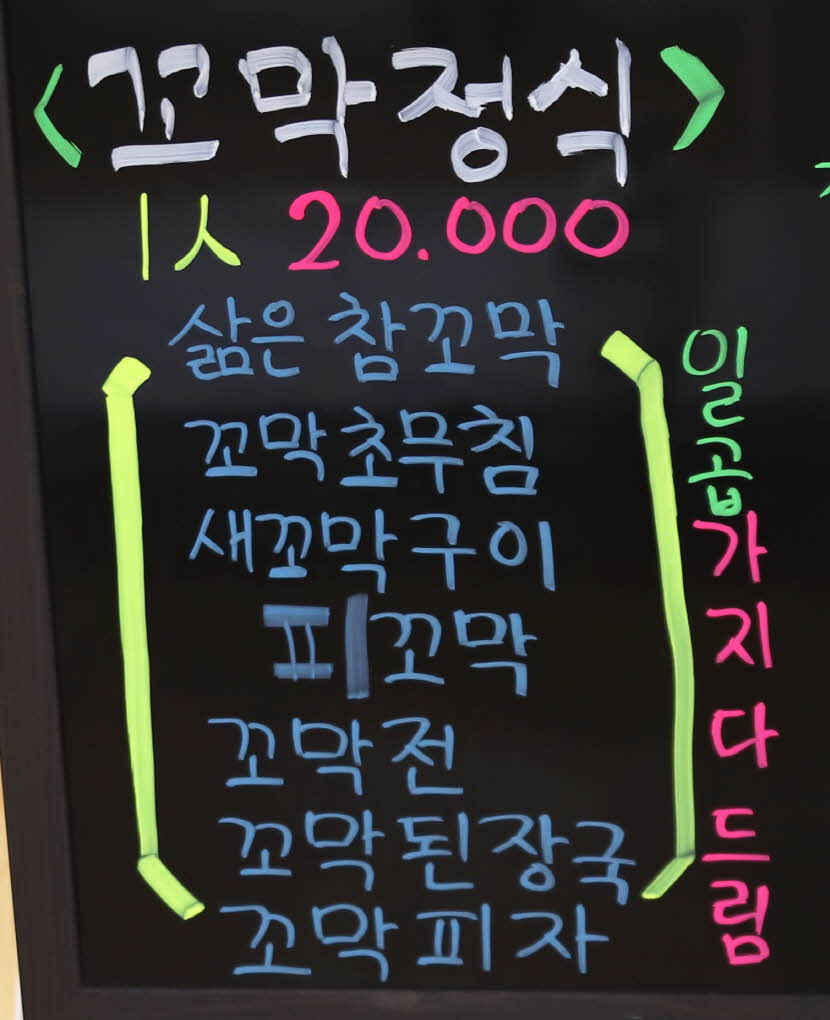 <꼬막정식>
1人 20.000
삶은 참꼬막
꼬막초무침
새꼬막구이
피꼬막
꼬막전
꼬막된장국
꼬막피자
일곱가지다드림